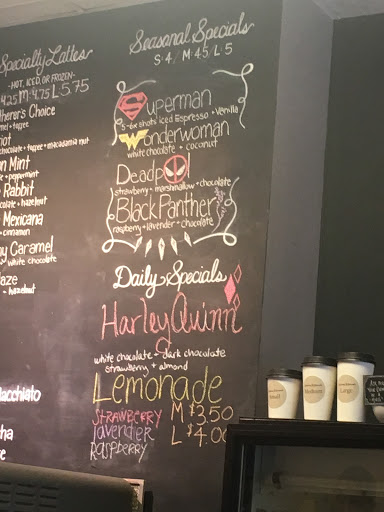 Specialty Lattes
-HOT, ICED, OR FROZEN-
4.25 M:4.75 L:5.75
Choice
toffee
chocolate + toffee + macadamia nut
Mint
+ peppermint
Rabbit
+ hazelnut
Mexicana
+ cinnamon
Caramel
white chocolate
+ hazelnut
Macchiato
Seasonal Specials
S:4/ M:4.5 L:5
Superman
5-6x shots iced Espresso + Vanilla
Wonderwoman
white chocolate + coconut
Deadpool
strawberry + marshmallow + chocolate
Black Panther
raspberry + lavender + chocolate
Daily Specials
Harley Quinn
white chocolate + dark chocolate
strawberry + almond
Lemonade
STRAWBERRY M $3.50
lavender L $4.00
RASPBERRY
Small
Medium
Large